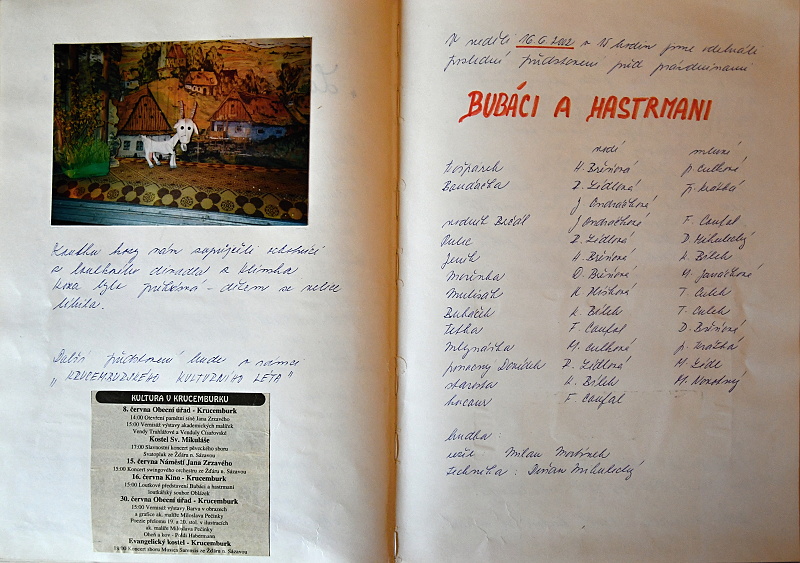 Loutku kozy nám zapůjčili
z loutkového divadla z Hlinska
koza byla
Další představení bude v rámci
"KRUCEMBURSKÉHO KULTURNÍHO LÉTA"
KULTURA V KRUCEMBURKU
8. června Obecní úřad - Krucemburk
14:00 Otevření pamětní síně Jana Zrzavého
15:00 Vernisáž výstavy akademických malířek
Vendy Truhlářové a Venduly Císařovské
Kostel Sv. Mikuláše
17:00 Slavnostní koncert pěveckého sboru
Svatopluk ze Žďáru n. Sázavou
15. června Náměstí Jana Zrzavého
15:00 Koncert swingového orchestru ze Žďáru n. Sázavou
16. června Kino - Krucemburk
15:00 Loutkové představení Bubáci a hastrmani
loutkářský soubor Oblázek
30. června Obecní úřad - Krucemburk
15:00 Vernisáž výstavy Barva v obrazech
a grafice ak. malíře Miloslava Pečinky
Poezie přelomu 19. a 20. stol. v ilustracích
ak. malíře Miloslava Pečinky
Oheň a kov - Poldi Habermann
Evangelický kostel - Krucemburk
18:00 Koncert sboru Musica Sarensis ze Žďáru n. Sázavou
V neděli 16.6.2002 v 15 hodin jsme odehráli
poslední představení před prázdninami
BUBÁCI A HASTRMANI
vodí mluví
Kašpárek H. Břeňová P. Culková
D. Lédlová P. Kražká
J. Ondráčková
vodník J. Ondráčková F. Coufal
D. Lédlová D. Mihulecký
Jeník H. Břeňová K. Bílek
Mařenka O. Břeňová M. Janáčková
K. T. Culek
K. Bílek T. Culek
Tetka F. Coufal D. Břeňová
Mlynářka M. Culková P. Kražká
D. Lédlová M. Lédl
starosta K. Bílek M. Novotný
kocour F. Coufal
hudba:
režie Milan
technika: Dušan Mihulecký